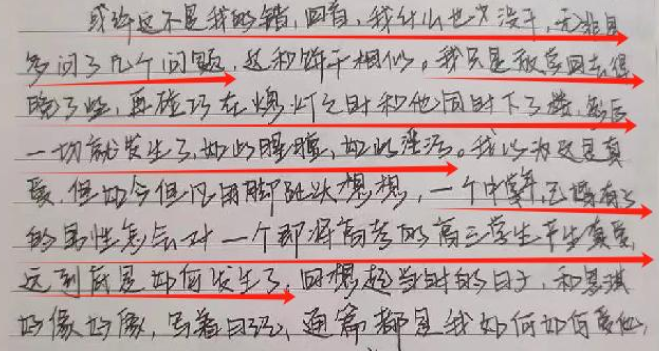 或许这不是我的错，回首，我什么也没干，无非是
多问了几个问题，这和饼干相似。我只是被害回去得
晚了些，再碰巧在熄灯之时和他同时下了楼，然后
一切就发生了，如此朦胧，如此淫污。我以为这是真
爱，但如今但凡用脚趾头想想，一个中年，已婚有子
的男性怎会对一个即将高考的高三学生产生真爱，
这到底是如何发生了。回想起当时的日子，和思琪
好像好像，写着日记，通篇都是我如何如何爱他，